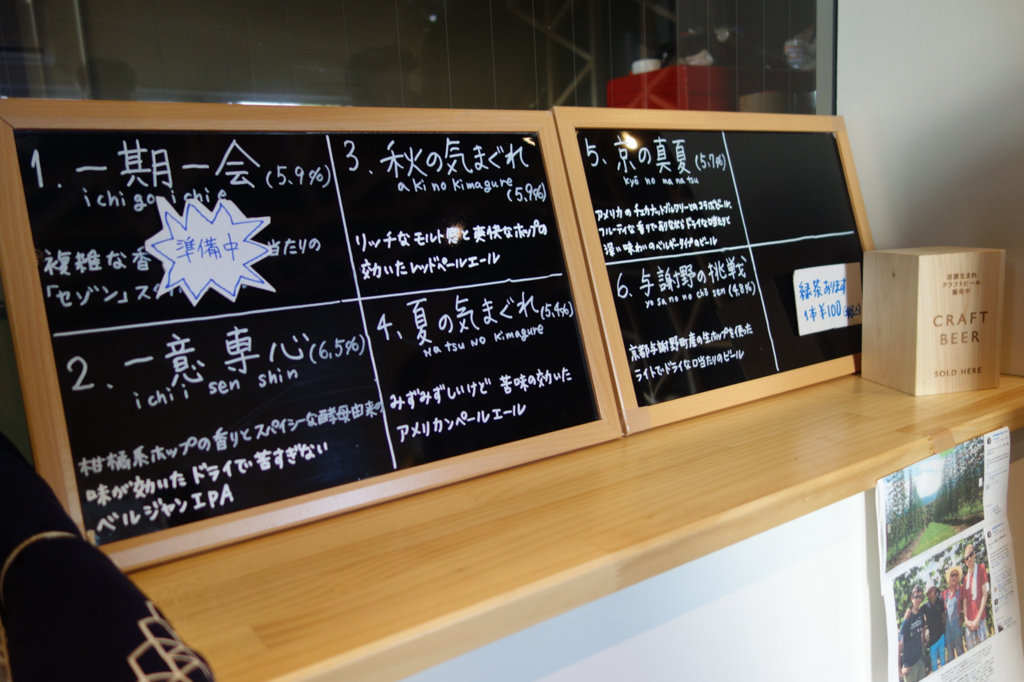 1. 一期一会(5.9%)
ichi go ichi e
複雑な香 当たりの
「セゾン」ス
準備中
2. 一意専心(6.5%)
ichi i sen shin
柑橘系ホップの香りとスパイシーな酵母由来の
味が効いたドライで苦すぎない
ベルジャンIPA
3. 秋の気まぐれ
aki no kimagure
(5.9%)
リッチなモルト感と爽快なホップの
効いたレッドペールエール
4. 夏の気まぐれ(5.4%)
na tsu no kimagure
みずみずしいけど 苦味の効いた
アメリカンペールエール
5. 京の真夏(5.7%)
kyō no ma na tsu
アメリカの とのコラボビール。
フルーティな香りでありながらドライな口当たりで
深い味わいのベルギータイプのビール
6. 与謝野の挑戦
yo sa no no chō sen (4.8%)
京都与謝野町産の生ホップを使った
ライトでドライな口当たりのビール
緑茶あります
1杯¥100
京都生まれ
クラフトビール
販売中
CRAFT
BEER
SOLD HERE